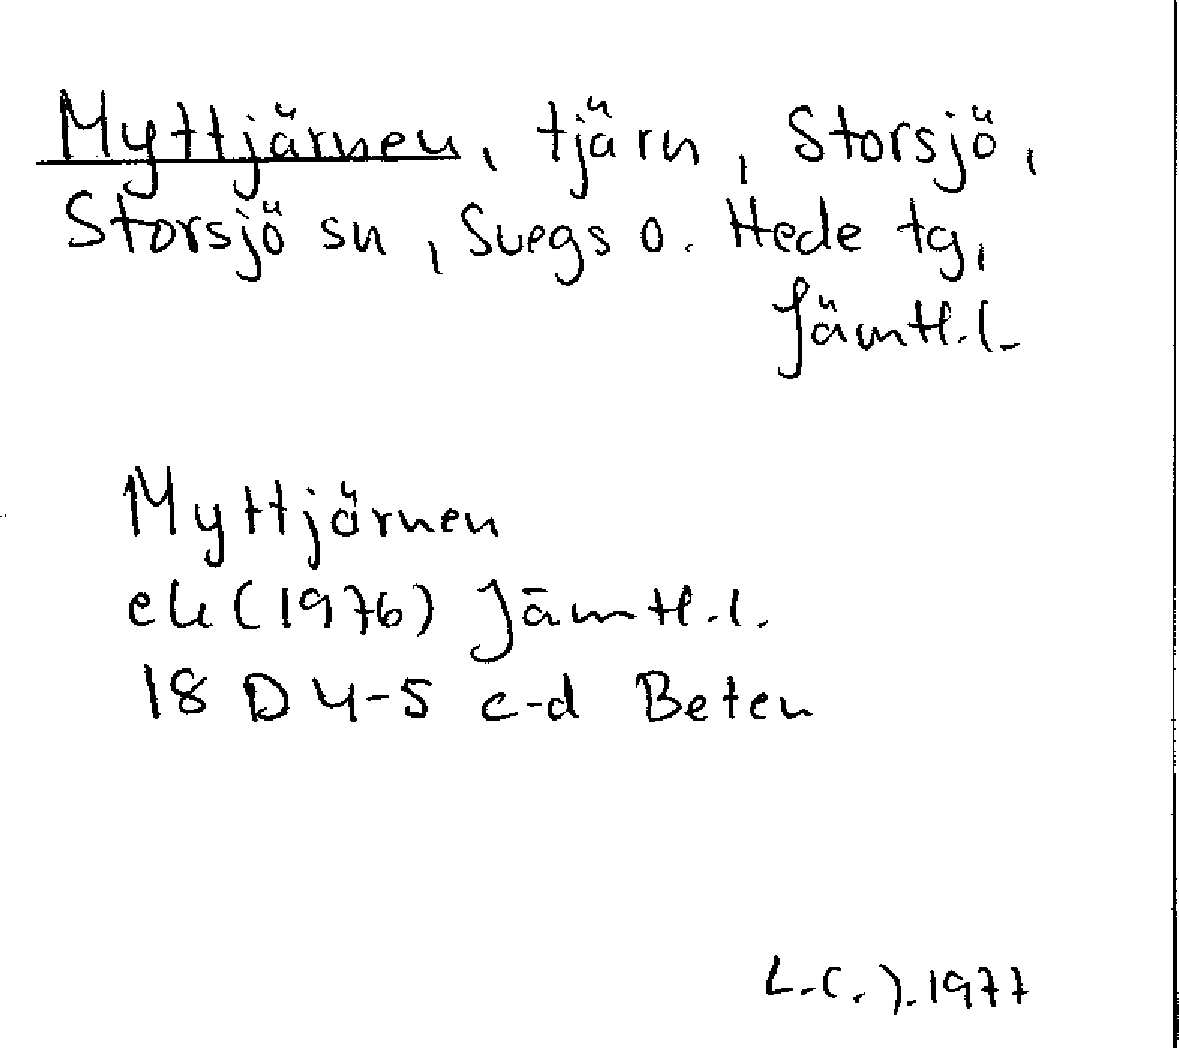 Myttjärnen, tjärn, Storsjö,
Storsjö sn, Svegs o. Hede tg,
Jämtl.l.
Myttjärnen
ek (1976) Jämtl.l.
18 D 4-5 c-d Beten
L.C.J. 1977